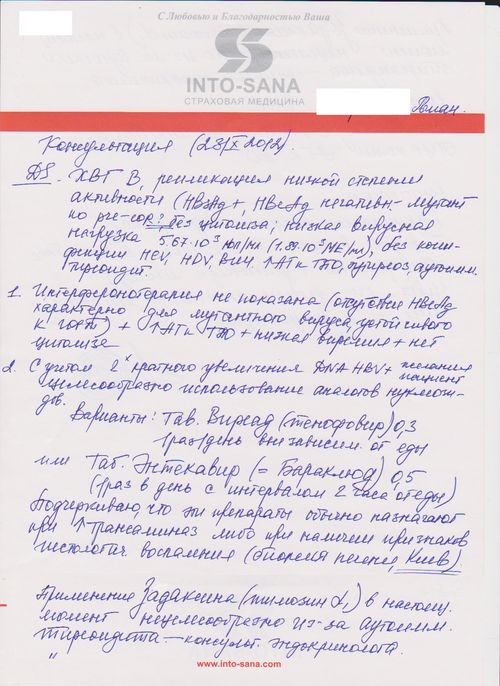 С Любовью и Благодарностью Ваша
INTO-SANA
СТРАХОВАЯ МЕДИЦИНА
Роман.
Консультация (23/X 2012).
DS. ХВГ В, репликация низкой степени
активности (HBsAg+, HBeAg негативн- мутант
по pre-cor? без цитолиза; низкая вирусная
нагрузка 5.67·10³ коп/мл (1.89·10³ МЕ/мл), без коин-
фекции HCV, HDV, Вич. ↑АТк ТПО, эутиреоз, аутоим.
тиреоидит.
1. Интерферонотерапия не показана (отсутствие HBeAg
характерно для мутантного вируса, устойчивого
к ) + ↑АТк ТПО + низкая виремия + нет
цитолиза
2. С учетом 2х кратного увеличения DNA HBV + желания
пациент
целесообразно использование аналогов нуклеози-
дов.
Варианты: Таб. Вирeад (тенофовир) 0,3
1раз/день вне зависим. от еды
или Таб. Энтекавир (= Бараклюд) 0,5
(1раз в день с интервалом 2 часа от еды)
Подчеркиваю, что эти препараты обычно назначают
при ↑ трансаминаз либо при наличии признаков
гистологич воспаления (биопсия печени, Киев).
Применение Задаксина (тимозин α₁) в настоящ.
момент нецелесообразно из-за аутоим.
тиреоидита — консульт. эндокринолога.
www.into-sana.com